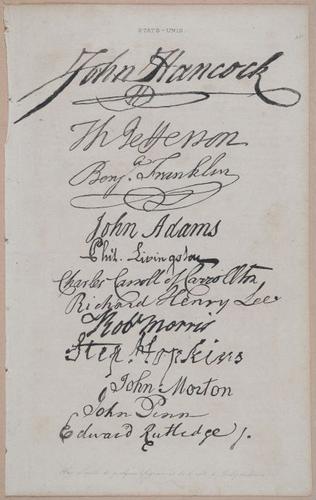 ETATS-UNIS.
John Hancock
Th Jefferson
Benj.ª Franklin
John Adams
Phil. Livingston
Charles Carroll of Carrollton
Richard Henry Lee
Robt Morris
Step. Hopkins
John Morton
John Penn
Edward Rutledge J.